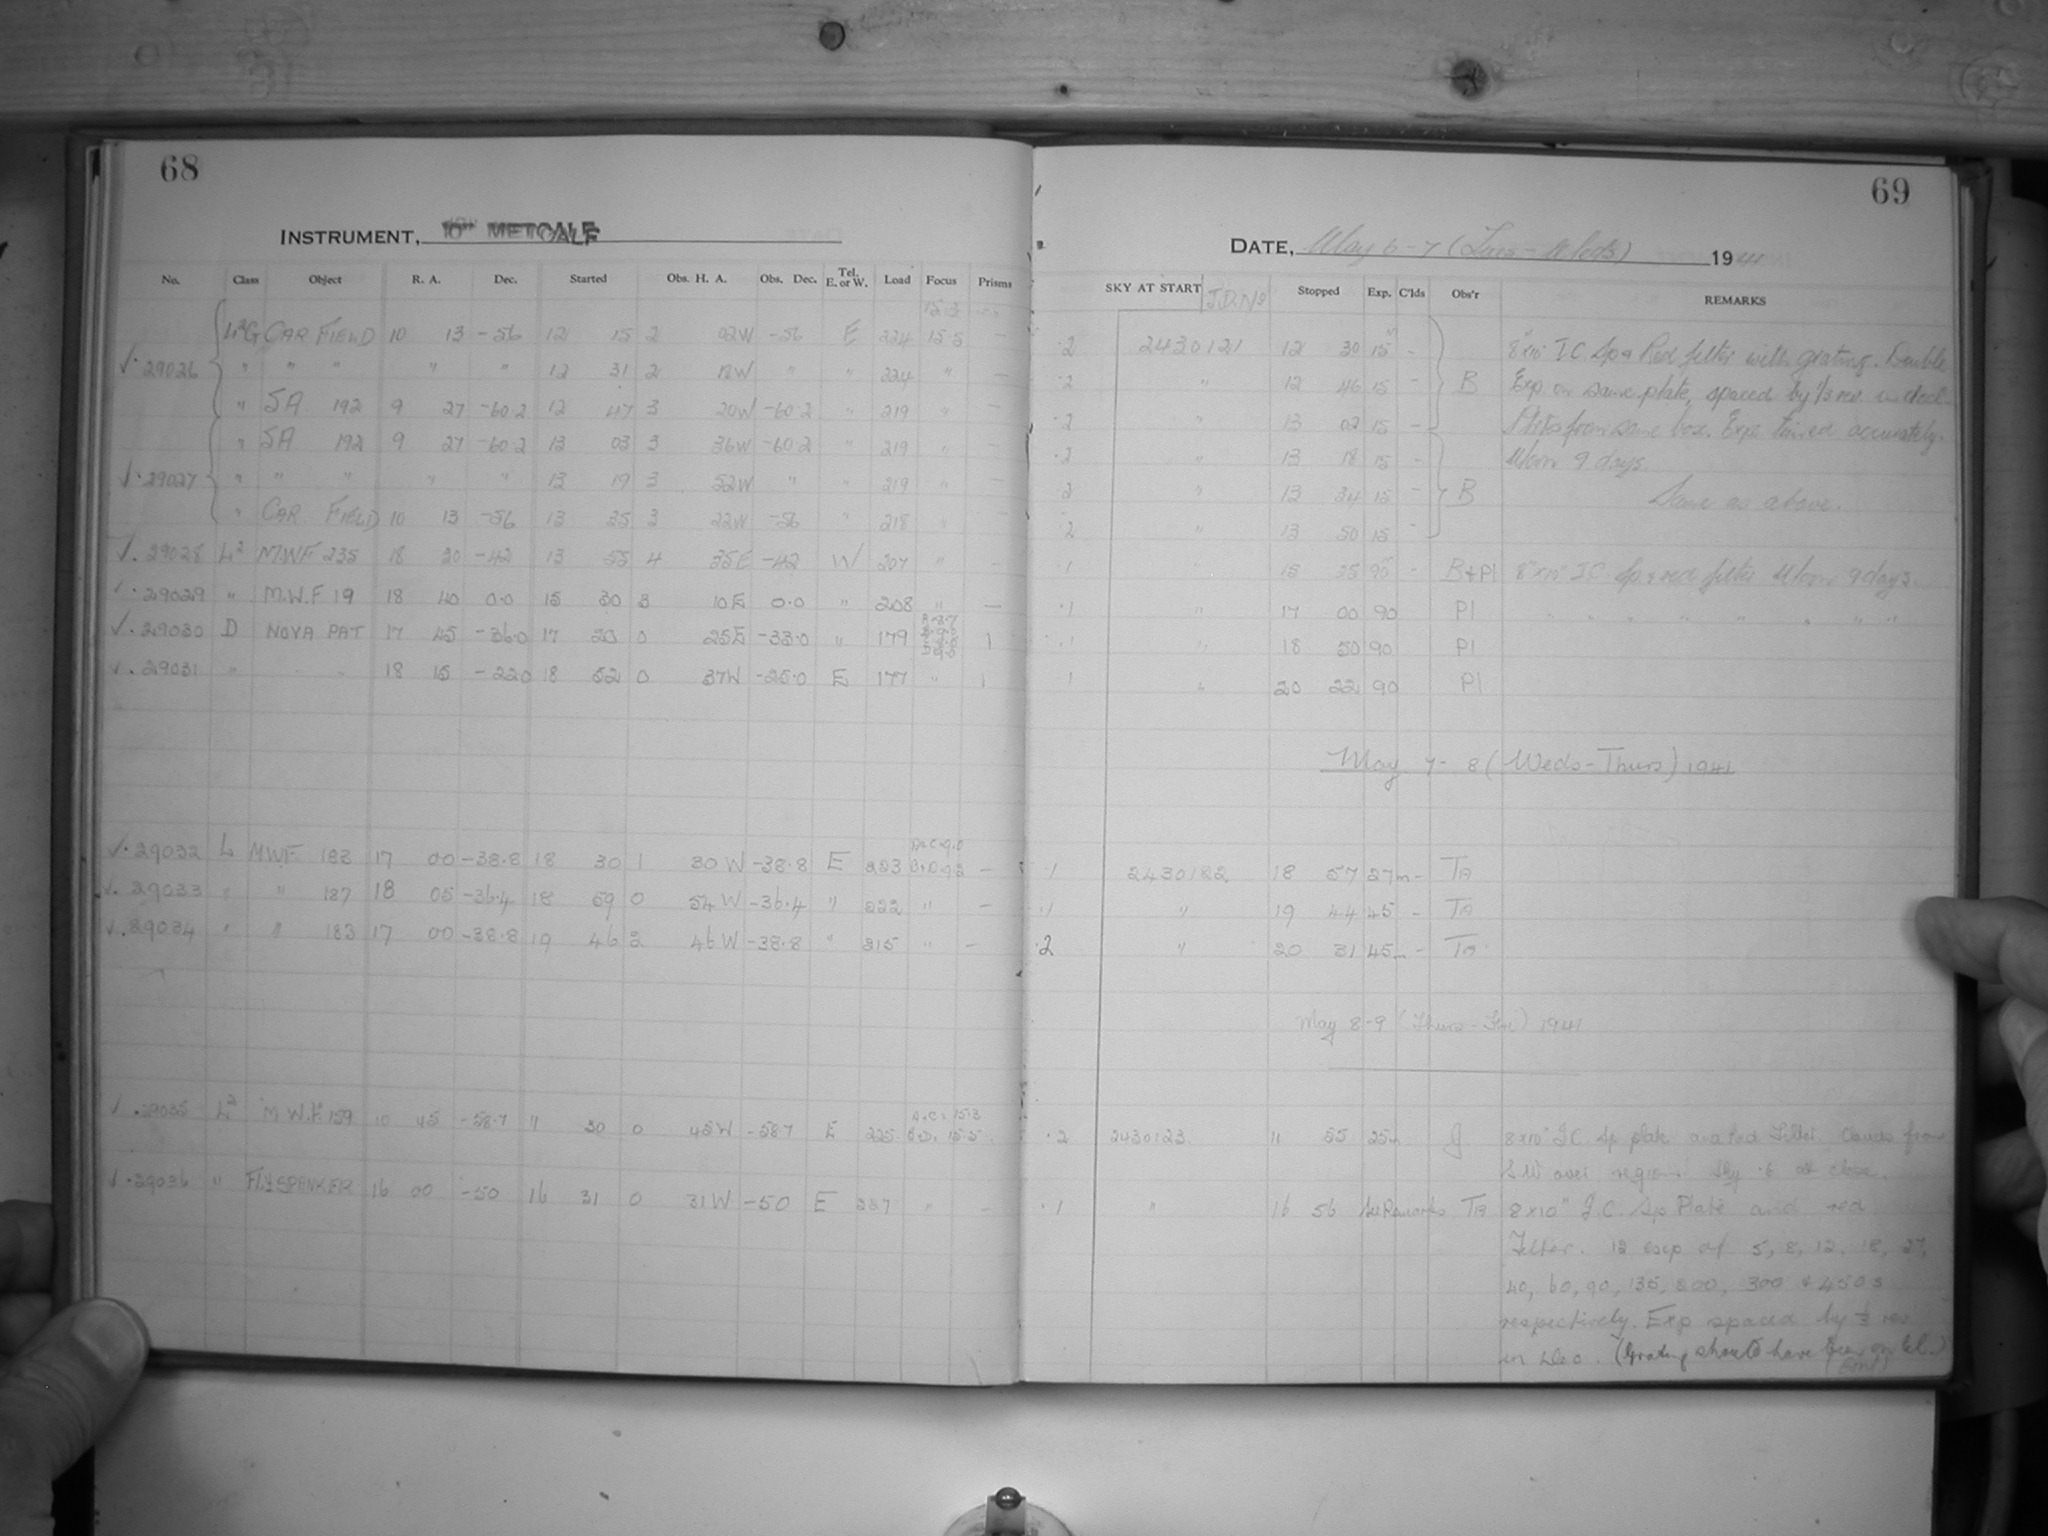 68
INSTRUMENT, 10" METCALF
No. Class Object R. A. Dec. Started Obs. H. A. Obs. Dec. Tel. E. or W. Load Focus Prisms
15.3
L²G CAR FIELD 10 13 -56 12 15 2 02W -56 E 224 15.5 —
✓· 29026 " " " " " 12 31 2 18W " " 224 " —
" SA 192 9 27 -60.2 12 47 3 20W -60.2 " 219 " —
" SA 192 9 27 -60.2 13 03 3 36W -60.2 " 219 " —
✓· 29027 " " " " " 13 19 3 52W " " 219 " —
" CAR FIELD 10 13 -56 13 35 3 22W -56 " 218 "
✓. 29028 L² M.W.F 235 18 20 -42 13 55 4 35E -42 W 207 " -
✓· 29029 " M.W.F 19 18 40 0.0 15 30 3 10E 0.0 " 208 " —
✓. 29030 D NOVA PAT 17 45 -36.0 17 20 0 25E -33.0 " 179 1
✓. 29031 " 18 15 -22.0 18 52 0 37W -25.0 E 177 " 1
✓· 29032 L MWF 183 17 00 -38.8 18 30 1 30 W -38.8 E 223 —
✓. 29033 " " 187 18 05 -36.4 18 59 0 54 W -36.4 " 222 " —
✓. 29034 " " 183 17 00 -38.8 19 46 2 46 W -38.8 " 215 " —
A.C. 15.3
✓ .29035 L² M.W.F 159 10 45 -58.7 11 30 0 45W -58.7 E 225 B.D. 15.5
✓ .29036 " FLYSPANKER 16 00 -50 16 31 0 31W -50 E 227 " —
69
DATE, May 6-7 (Tues - Weds) 1941
SKY AT START J.D. No Stopped Exp. C'lds Obs'r REMARKS
.2 2430121 12 30 15 - 8"x10" I.C. Sp & Red filter with grating. Double
.2 " 12 46 15 - B Exp on same plate, spaced by 1/3 rev in decl.
.2 " 13 02 15 - Plates from same box. Exp. timed accurately.
.2 " 13 18 15 - Moon 9 days.
.2 " 13 34 15 - B Same as above.
.2 " 13 50 15 -
.1 " 15 25 90 - B+Pl 8"x10" I.C. Sp. & red filter Moon 9 days.
.1 " 17 00 90 Pl " " " " " " "
.1 " 18 50 90 Pl
1 " 20 22 90 Pl
May 7 - 8 (Weds - Thurs) 1941
.1 2430122 18 57 27m - TA
.1 " 19 44 45 - TA
.2 " 20 31 45m - TA
May 8-9 (Thurs - Fri) 1941
.2 2430123 11 55 25m J 8x10" I.C. Sp plate and red Filter. Clouds from
S.W over region. Sky .6 at close.
.1 " 16 56 See Remarks TA 8x10" I.C. Sp Plate and red
Filter. 12 exp of 5, 8, 12, 18, 27,
40, 60, 90, 135, 200, 300 & 450 s
respectively. Exp spaced by 1/3 rev
in Dec. (Grating should have been on tel.)